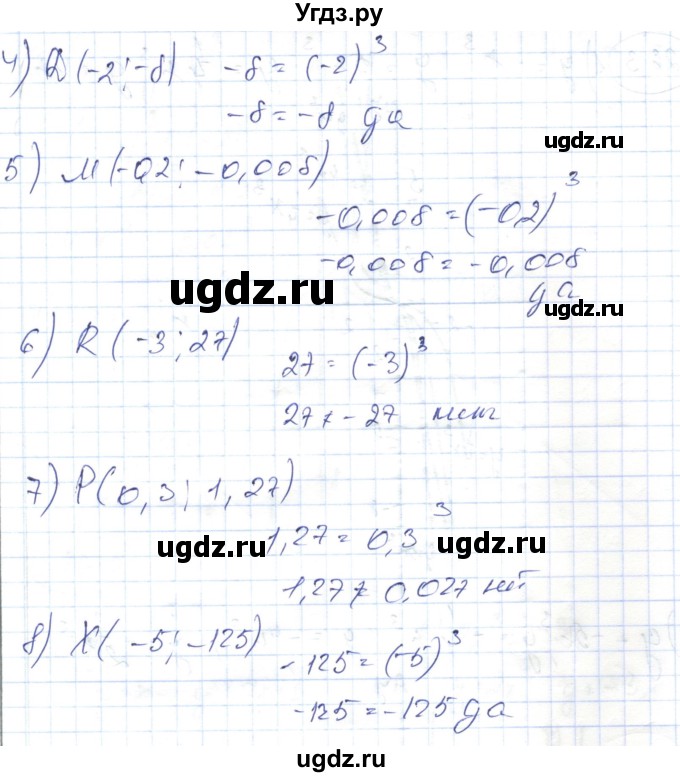 Угдз.ру
4) D (-2; -8) -8 = (-2)³
-8 = -8 да
ugdz.ru
5) M (-0,2; -0,008)
-0,008 = (-0,2)³
-0,008 = -0,008
ugdz.ru
да
ugdz.ru
6) R (-3; 27)
27 = (-3)³
27 ≠ -27 нет
7) P(0,3; 1,27)
1,27 = 0,3³
ugdz.ru ugdz.ru
1,27 ≠ 0,027 нет
8) X( -5; -125)
-125 = (-5)³
-125 = -125 да
ugdz.ru